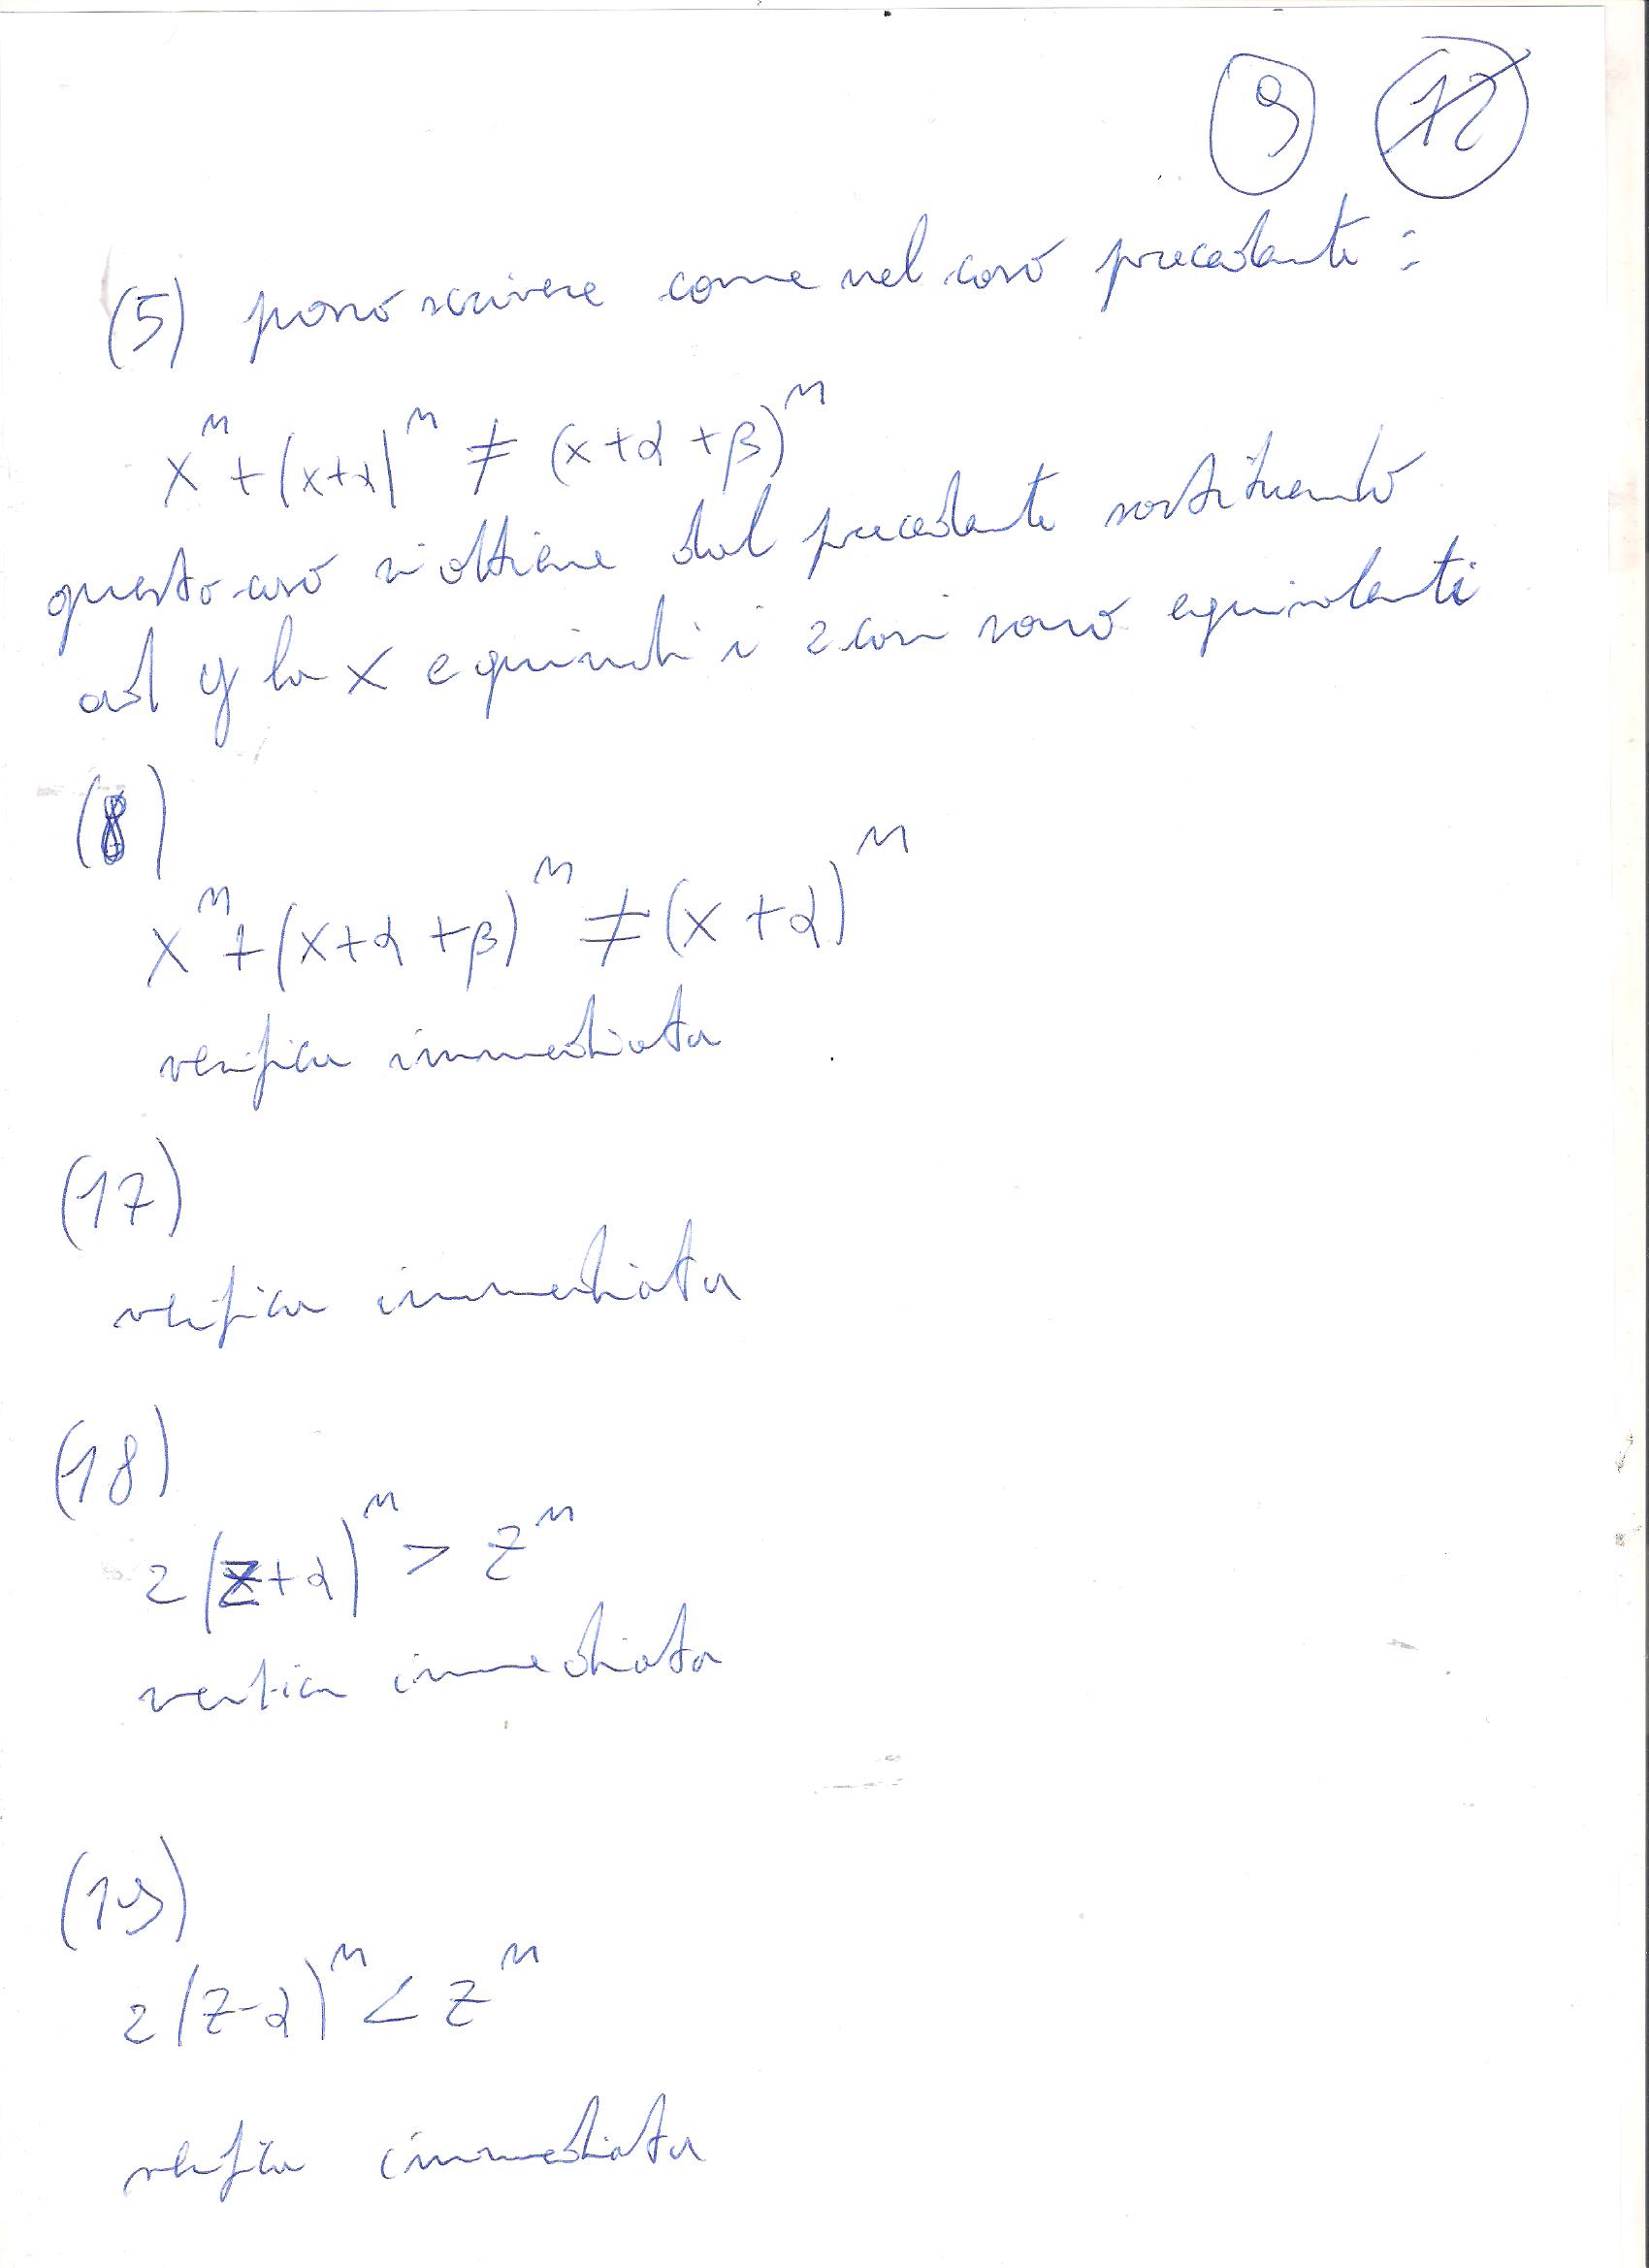 9 12
(5) posso scrivere come nel caso precedente:
x^n + (x+α)^n ≠ (x+α+β)^n
questo caso si ottiene dal precedente sostituendo
ad y la x e quindi i 2 casi sono equivalenti
(8)
x^n + (x+α+β)^n ≠ (x+α)^n
verifica immediata
(17)
verifica immediata
(18)
2(z+α)^n > z^n
verifica immediata
(19)
2(z-α)^n < z^n
verifica immediata